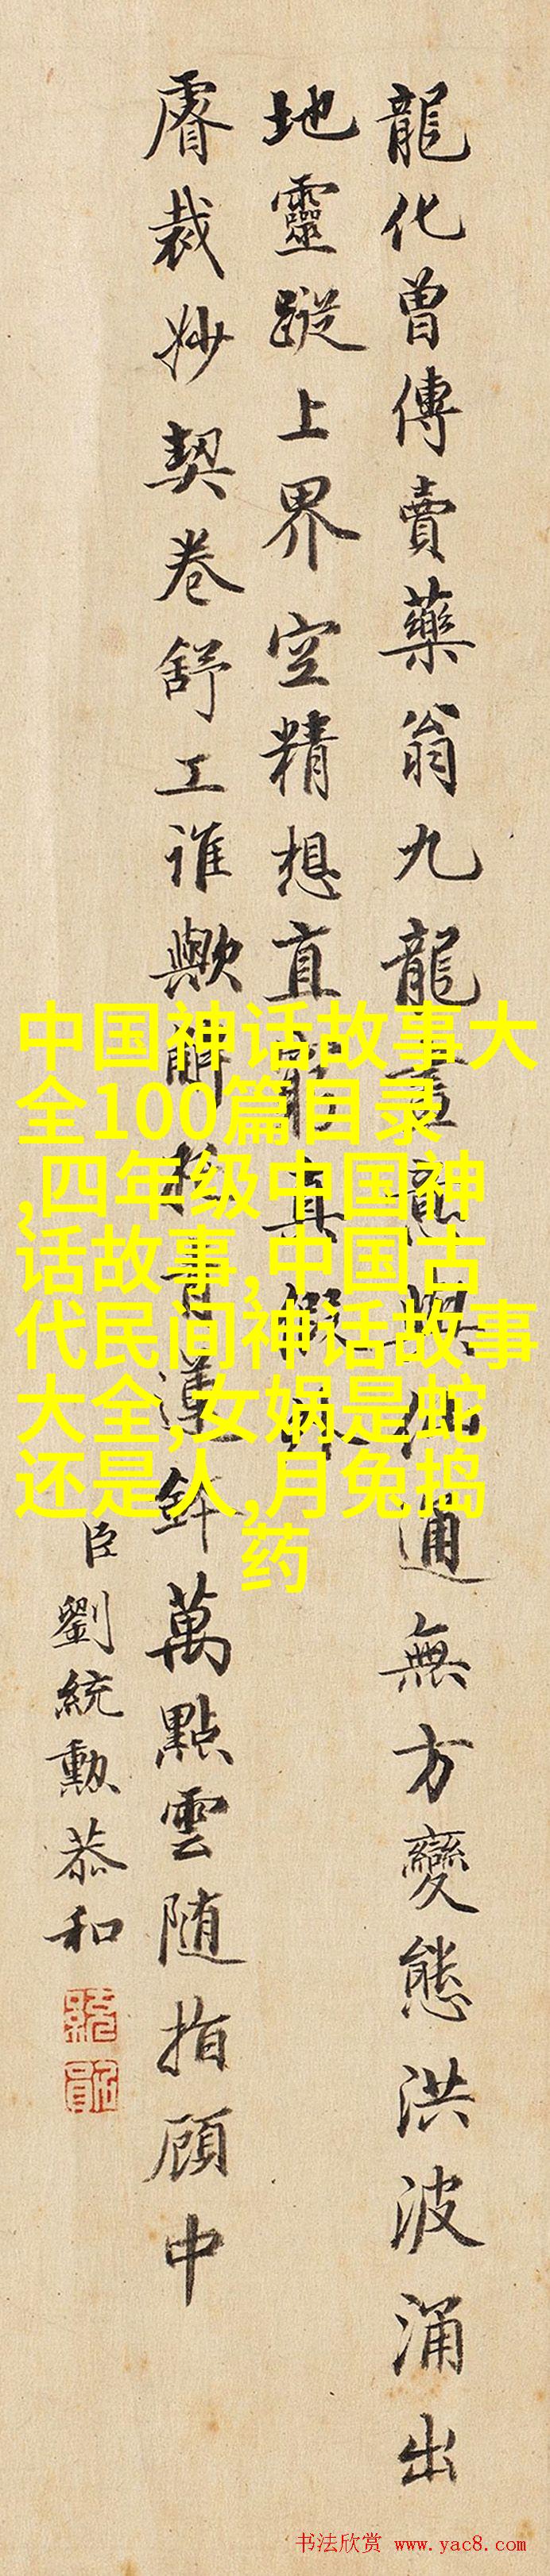 龍化曾傳賣藥翁九龍畫與仙通無方變態洪波涌出
地靈蹤上界空精想直真假
睿裁妙契卷舒工誰歟萬點雲随指顧中
臣劉統勲恭和
中国神话故事大
全100篇目录
,四年级中国神
话故事,中国古
代民间神话故事
大全,女娲是蛇
还是人,月兔捣
药
书法欣赏 www.yac8.com